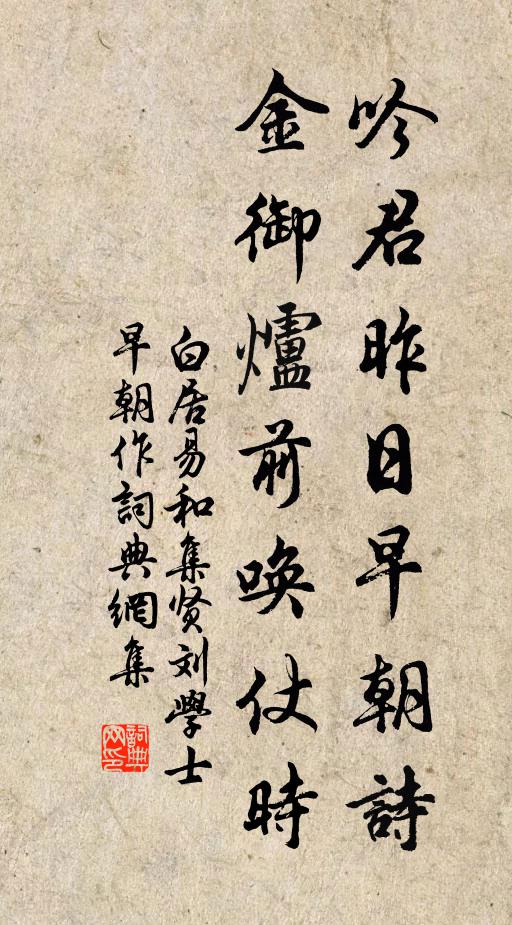 吟君昨日早朝詩
金御爐前喚仗時
白居易和集贤刘學士
早朝作詞典網集
詞典
网印